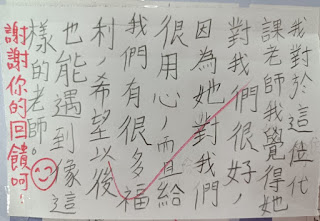 我對於這位代
課老師我覺得她
對我們很好，
因為她對我們
很用心，而且給
我們有很多福
利，希望以後
也能遇到像這
樣的老師。
謝謝你的回饋呵！